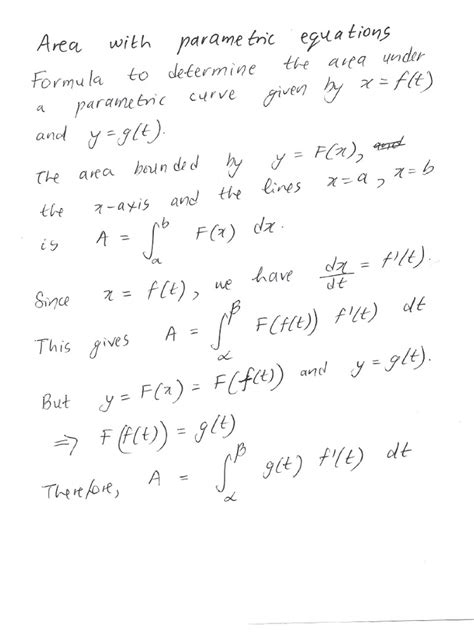 Area with parametric equations
Formula to determine the area under
a parametric curve given by x = f(t)
and y = g(t).
The area bounded by y = F(x), and
the x-axis and the lines x = a, x = b
is A = ∫_a^b F(x) dx.
Since x = f(t), we have dx/dt = f'(t).
This gives A = ∫_α^β F(f(t)) f'(t) dt
But y = F(x) = F(f(t)) and y = g(t).
⇒ F(f(t)) = g(t)
Therefore, A = ∫_α^β g(t) f'(t) dt